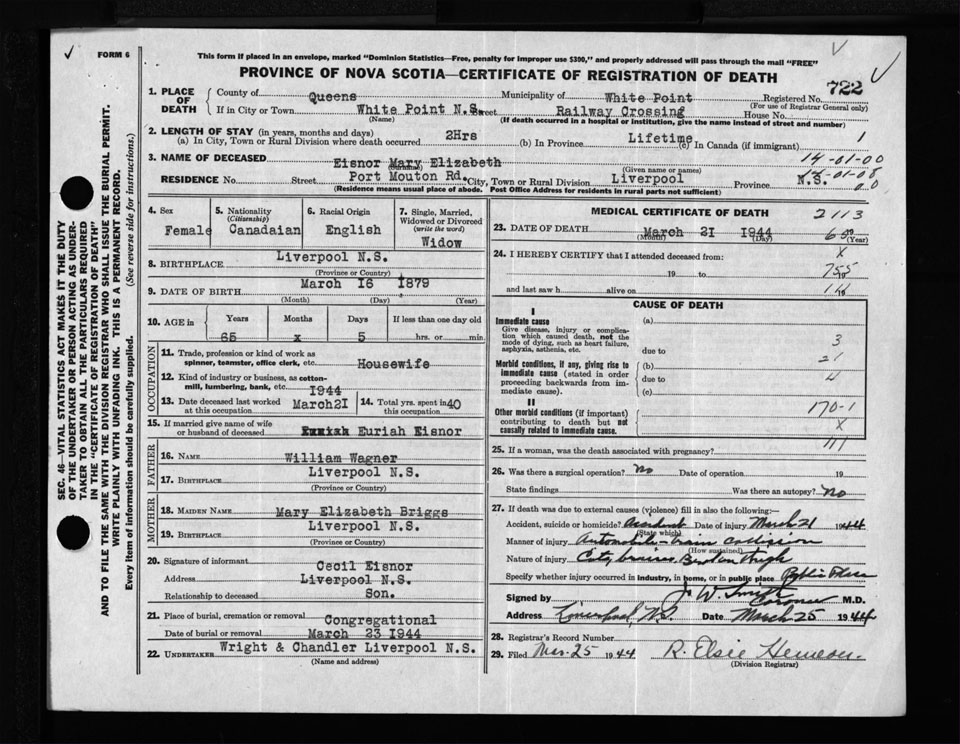 FORM 6
This form if placed in an envelope, marked "Dominion Statistics—Free, penalty for improper use $300," and properly addressed will pass through the mail "FREE"
PROVINCE OF NOVA SCOTIA—CERTIFICATE OF REGISTRATION OF DEATH
722
1. PLACE OF DEATH
County of Queens Municipality of White Point Registered No.
(For use of Registrar General only)
If in City or Town White Point N.S. Street Railway Crossing House No.
(Name) (If death occurred in a hospital or institution, give the name instead of street and number)
2. LENGTH OF STAY (in years, months and days)
(a) In City, Town or Rural Division where death occurred 2Hrs (b) In Province Lifetime (c) In Canada (if immigrant) 1
3. NAME OF DECEASED Eisnor Mary Elizabeth 14-01-00
(Given name or names)
RESIDENCE No. Street Port Mouton Rd. City, Town or Rural Division Liverpool Province N.S.
(Residence means usual place of abode. Post Office Address for residents in rural parts not sufficient)
SEC. 46—VITAL STATISTICS ACT MAKES IT THE DUTY
OF THE UNDERTAKER OR PERSON ACTING AS UNDER-
TAKER TO OBTAIN ALL THE PARTICULARS REQUIRED
IN THE "CERTIFICATE OF REGISTRATION OF DEATH"
AND TO FILE THE SAME WITH THE DIVISION REGISTRAR WHO SHALL ISSUE THE BURIAL PERMIT.
WRITE PLAINLY WITH UNFADING INK. THIS IS A PERMANENT RECORD.
Every item of information should be carefully supplied. (See reverse side for instructions.)
4. Sex Female
5. Nationality (Citizenship) Canadaian
6. Racial Origin English
7. Single, Married, Widowed or Divorced (write the word) Widow
8. BIRTHPLACE Liverpool N.S.
(Province or Country)
9. DATE OF BIRTH March 16 1879
(Month) (Day) (Year)
10. AGE in Years Months Days If less than one day old
65 x 5 hrs. or min.
OCCUPATION
11. Trade, profession or kind of work as spinner, teamster, office clerk, etc. Housewife
12. Kind of industry or business, as cotton-mill, lumbering, bank, etc.
13. Date deceased last worked at this occupation 1944 March21
14. Total yrs. spent in this occupation 40
15. If married give name of wife or husband of deceased Euriah Eisnor
FATHER
16. NAME William Wagner
17. BIRTHPLACE Liverpool N.S.
(Province or Country)
MOTHER
18. MAIDEN NAME Mary Elizabeth Briggs
19. BIRTHPLACE Liverpool N.S.
(Province or Country)
20. Signature of informant Cecil Eisnor
Address Liverpool N.S.
Relationship to deceased Son.
21. Place of burial, cremation or removal Congregational
Date of burial or removal March 23 1944
22. UNDERTAKER Wright & Chandler Liverpool N.S.
(Name and address)
MEDICAL CERTIFICATE OF DEATH 2113
23. DATE OF DEATH March 21 1944
(Month) (Day) (Year)
24. I HEREBY CERTIFY that I attended deceased from: x
19 to
and last saw h alive on
CAUSE OF DEATH
I
Immediate cause
Give disease, injury or complication which caused death, not the mode of dying, such as heart failure, asphyxia, asthenia, etc.
(a)
3
due to
21
Morbid conditions, if any, giving rise to immediate cause (stated in order proceeding backwards from immediate cause).
(b)
due to
4
(c)
II
Other morbid conditions (if important) contributing to death but not causally related to immediate cause.
170-1
x
25. If a woman, was the death associated with pregnancy?
26. Was there a surgical operation? no Date of operation 19
State findings Was there an autopsy? no
27. If death was due to external causes (violence) fill in also the following:—
Accident, suicide or homicide? Accident Date of injury March 21 1944
(State which)
Manner of injury Automobile - train collision
(How sustained)
Nature of injury Cuts, bruises Broken thigh
Specify whether injury occurred in industry, in home, or in public place Public Place
Signed by J. W. Smith Coroner M.D.
Address Liverpool, N.S. Date March 25 1944
28. Registrar's Record Number
29. Filed Mar. 25 1944 R. Elsie Hemeon
(Division Registrar)